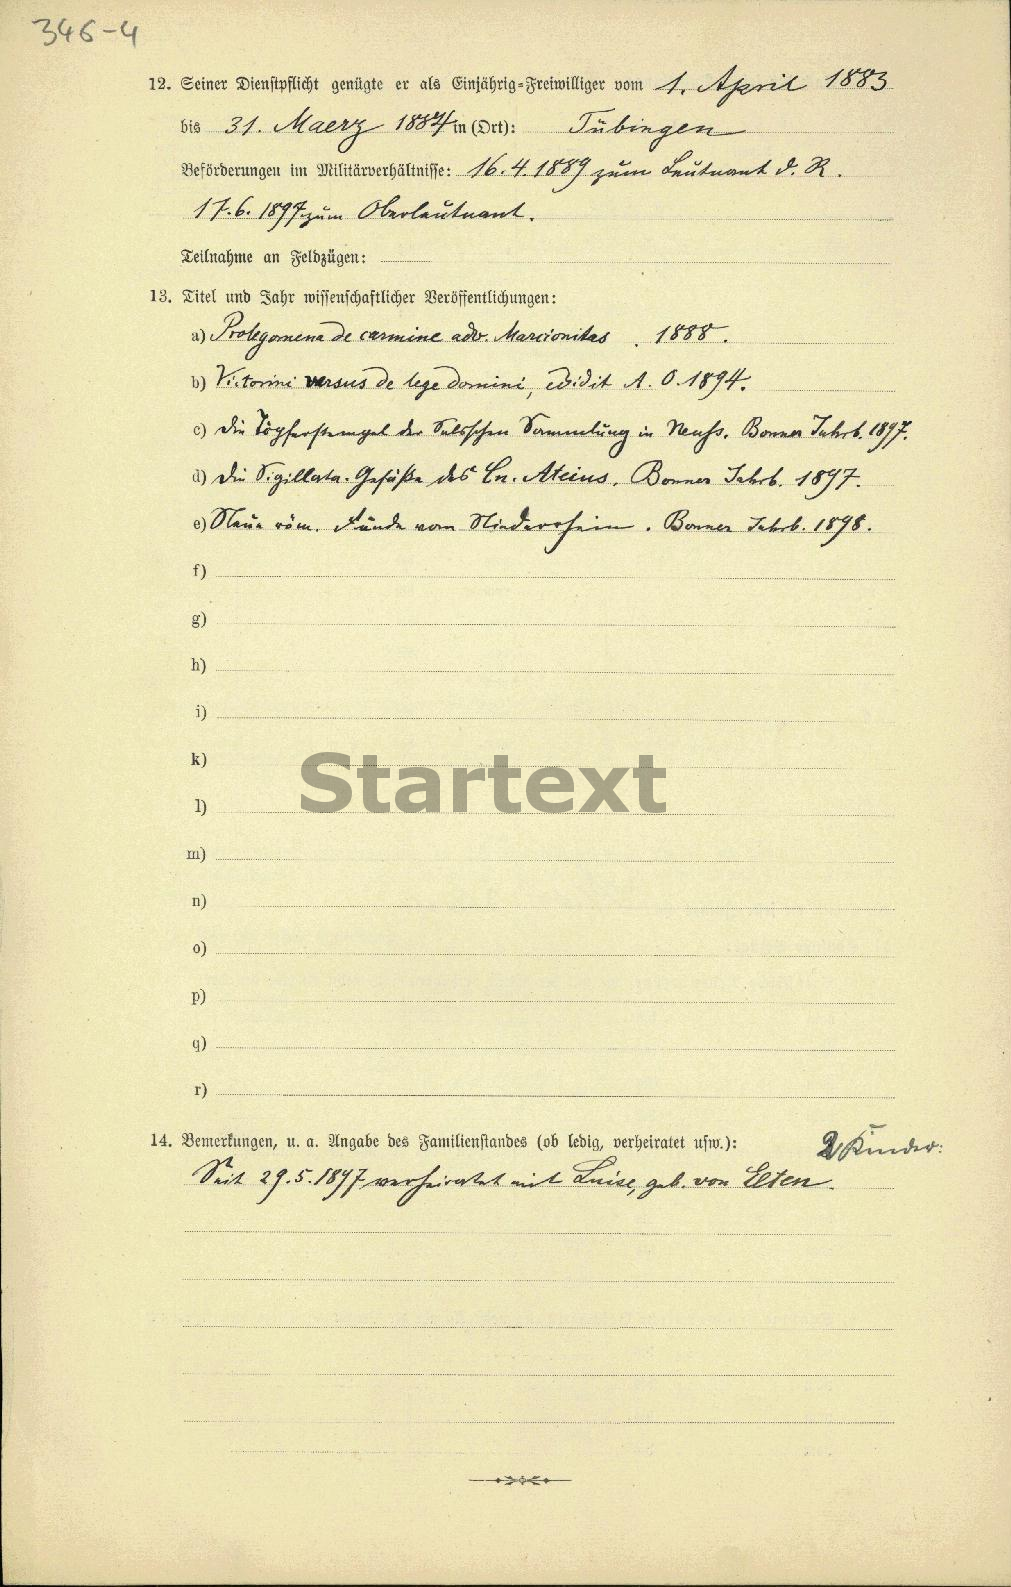 346-4
12. Seiner Dienstpflicht genügte er als Einjährig-Freiwilliger vom 1. April 1883
bis 31. Maerz 1884 in (Ort): Tübingen
Beförderungen im Militärverhältnisse: 16.4.1889 zum Leutnant d. R.
17.6.1897 zum Oberleutnant.
Teilnahme an Feldzügen:
13. Titel und Jahr wissenschaftlicher Veröffentlichungen:
a) Prolegomena de carmine adv. Marcionitas . 1888.
b) Victorini versus de lege domini, edidit A. O. 1894.
c) Die Töpferstempel der Selsschen Sammlung in Neuss. Bonner Jahrb. 1897.
d) Die Sigillata-Gefäße des Cn. Ateius. Bonner Jahrb. 1897.
e) Neue röm. Funde vom Niederrhein. Bonner Jahrb. 1898.
f)
g)
h)
i)
k)
Startext
l)
m)
n)
o)
p)
q)
r)
14. Bemerkungen, u. a. Angabe des Familienstandes (ob ledig, verheiratet usw.): 2 Kinder.
Seit 29.5.1897 verheiratet mit Luise, geb. von Elten.